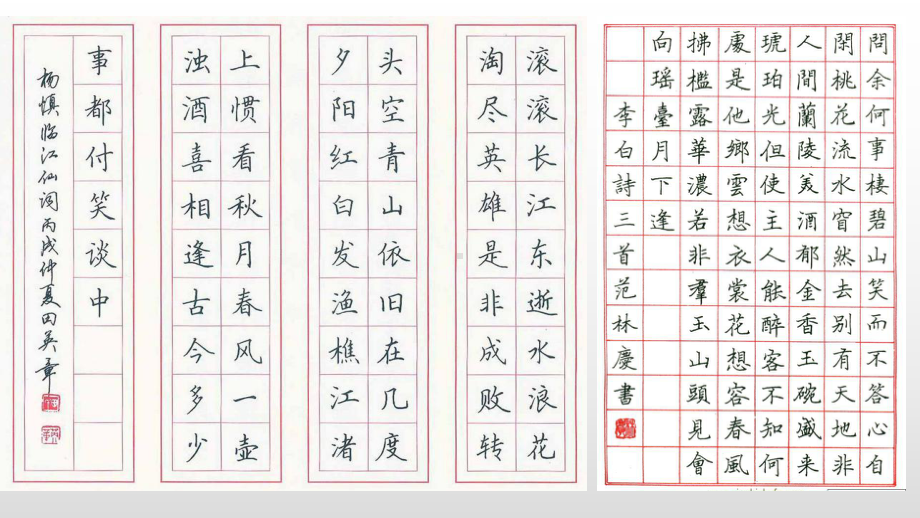 滚滚长江东逝水浪花
淘尽英雄是非成败转
头空青山依旧在几度
夕阳红白发渔樵江渚
上惯看秋月春风一壶
浊酒喜相逢古今多少
事都付笑谈中
杨慎临江仙词丙戌仲夏田英章
問余何事棲碧山笑而不答心自
閑桃花流水窅然去别有天地非
人間蘭陵美酒郁金香玉碗盛来
琥珀光但使主人能醉客不知何
處是他鄉雲想衣裳花想容春風
拂檻露華濃若非羣玉山頭見會
向瑶臺月下逢
李白詩三首范林慶書